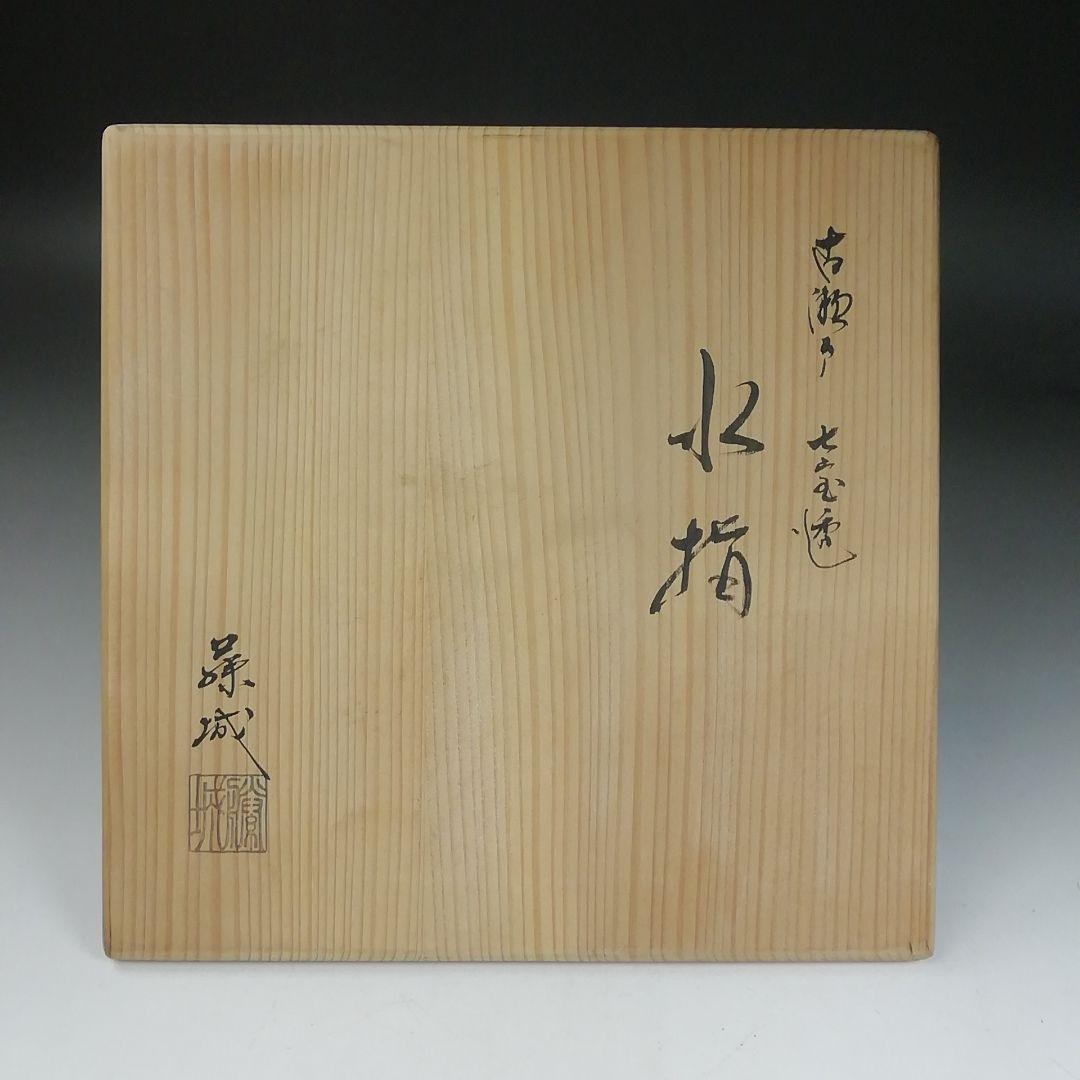 古瀬戸 七宝透
水指